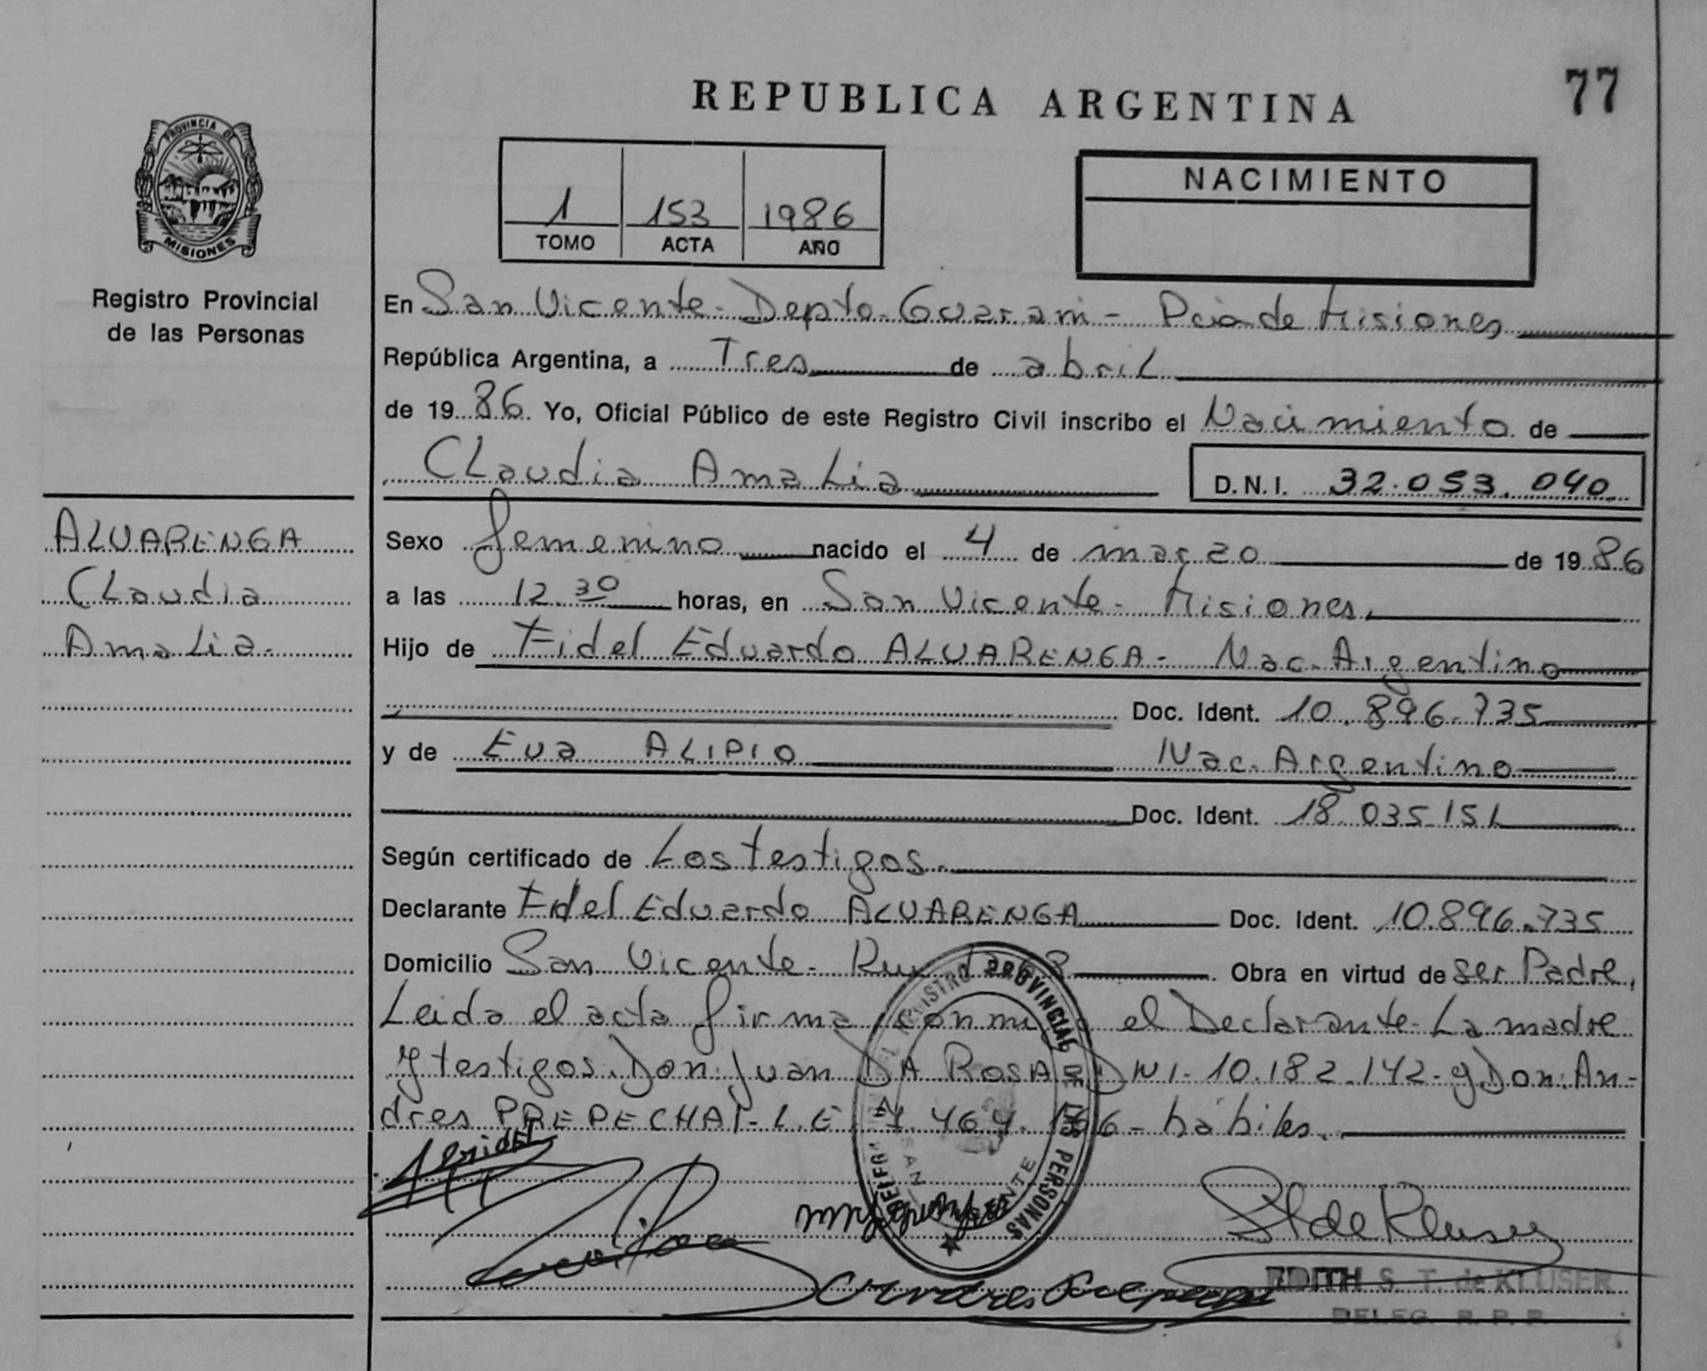 77
REPUBLICA ARGENTINA
PROVINCIA DE
MISIONES
Registro Provincial
de las Personas
1 153 1986
TOMO ACTA AÑO
NACIMIENTO
En San Vicente - Depto. Guarani - Pcia de Misiones
República Argentina, a Tres de abril
de 1986 Yo, Oficial Público de este Registro Civil inscribo el Nacimiento de
Claudia Amalia D.N.I. 32.053.040
ALVARENGA
Claudia
Amalia.
Sexo femenino nacido el 4 de marzo de 1986
a las 12.30 horas, en San Vicente - Misiones.
Hijo de Fidel Eduardo ALVARENGA - Nac. Argentino
Doc. Ident. 10.896.735
y de Eva ALIPIO Nac. Argentino
Doc. Ident. 18.035.151
Según certificado de Los testigos.
Declarante Fidel Eduardo ALVARENGA Doc. Ident. 10.896.735
Domicilio San Vicente - Obra en virtud de ser Padre,
Leida el acta firma conmigo el Declarante - La madre
y testigos. Don Juan DA ROSA DNI. 10.182.142 - y Don An-
dres PREPECHAI - L.E. 7.464. - hábiles.
REGISTRO PROVINCIAL DE LAS PERSONAS
SAN VICENTE
EDITH S. T. de KLUSER
DELEG. R. P. P.